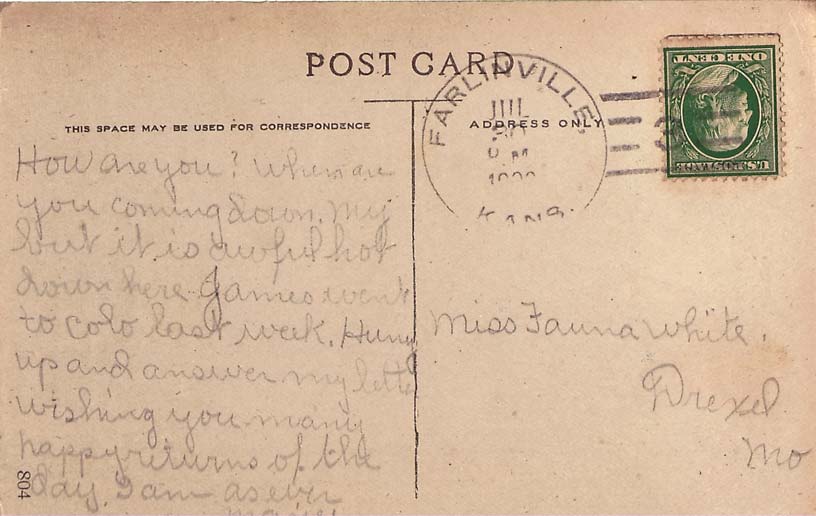 POST CARD
THIS SPACE MAY BE USED FOR CORRESPONDENCE
ADDRESS ONLY
FARLINVILLE,
JUL
KANS.
U.S. POSTAGE
ONE CENT
How are you? When are
you coming down. My
but it is awful hot
down here James went
to Colo last week. Hurry
up and answer my letter
wishing you many
happy returns of the
day. I am as ever
Miss Fauna White.
Drexel
Mo
804